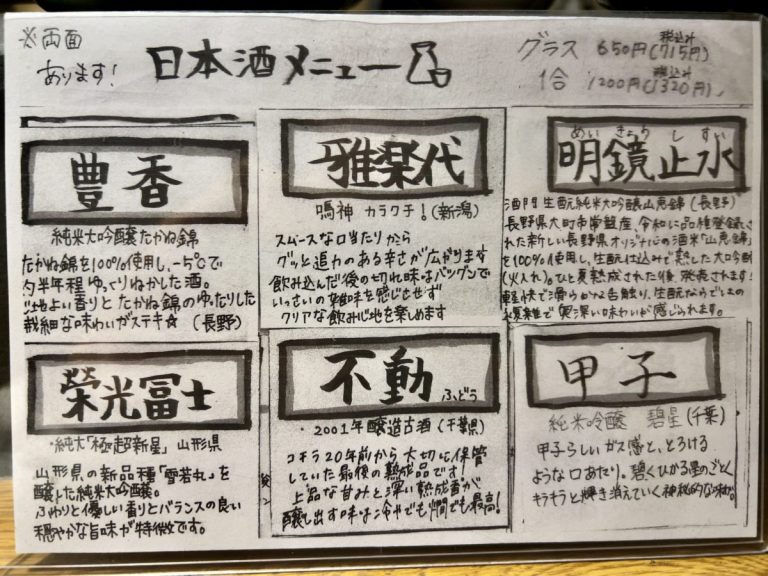 ※両面
あります!
日本酒メニュー
グラス 650円(税込み715円)
1合 1200円(税込み1320円)
豊香
純米大吟醸たかね錦
たかね錦を100%使用し、-5℃で
約半年程ゆっくりねかした酒。
心地よい香りとたかね錦のゆったりした
繊細な味わいがステキ☆ (長野)
雅楽代
鳴神 カラクチ!(新潟)
スムースな口当たりから
グッと迫力のある辛さが広がります
飲み込んだ後の切れ味はバツグンで
いっさいの雑味を感じさせず
クリアな飲み心地を楽しめます
めいきょうしすい
明鏡止水
酒門 生酛純米大吟醸山恵錦(長野)
長野県大町市常盤産、令和に品種登録さ
れた新しい長野県オリジナルの酒米「山恵錦」
を100%使用し、生酛仕込みで熟した大吟醸
(火入れ)。ひと夏熟成された後、発売されます!
軽快で滑らかな舌触り、生酛ならではの
複雑で奥深い味わいが感じられます。
榮光冨士
・純大「極超新星」山形県
山形県の新品種「雪若丸」を
醸した純米大吟醸。
ふわりと優しい香りとバランスの良い
穏やかな旨味が特徴です。
不動 ふどう
・2001年醸造古酒(千葉県)
コチラ20年前から大切に保管
していた最後の熟成品です
上品な甘みと深い熟成香が
醸し出す味は冷やでも燗でも最高!
甲子
純米吟醸 碧星(千葉)
甲子らしいガス感と、とろける
ような口あたり。碧くひかる星のごとく
キラキラと輝き消えていく神秘的な味わい。